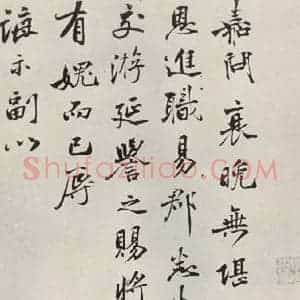 嘉問衰晚無堪
恩進職易郡
交游延譽之賜將
有媿而已辱
誨示副以
Shufaziliao.com